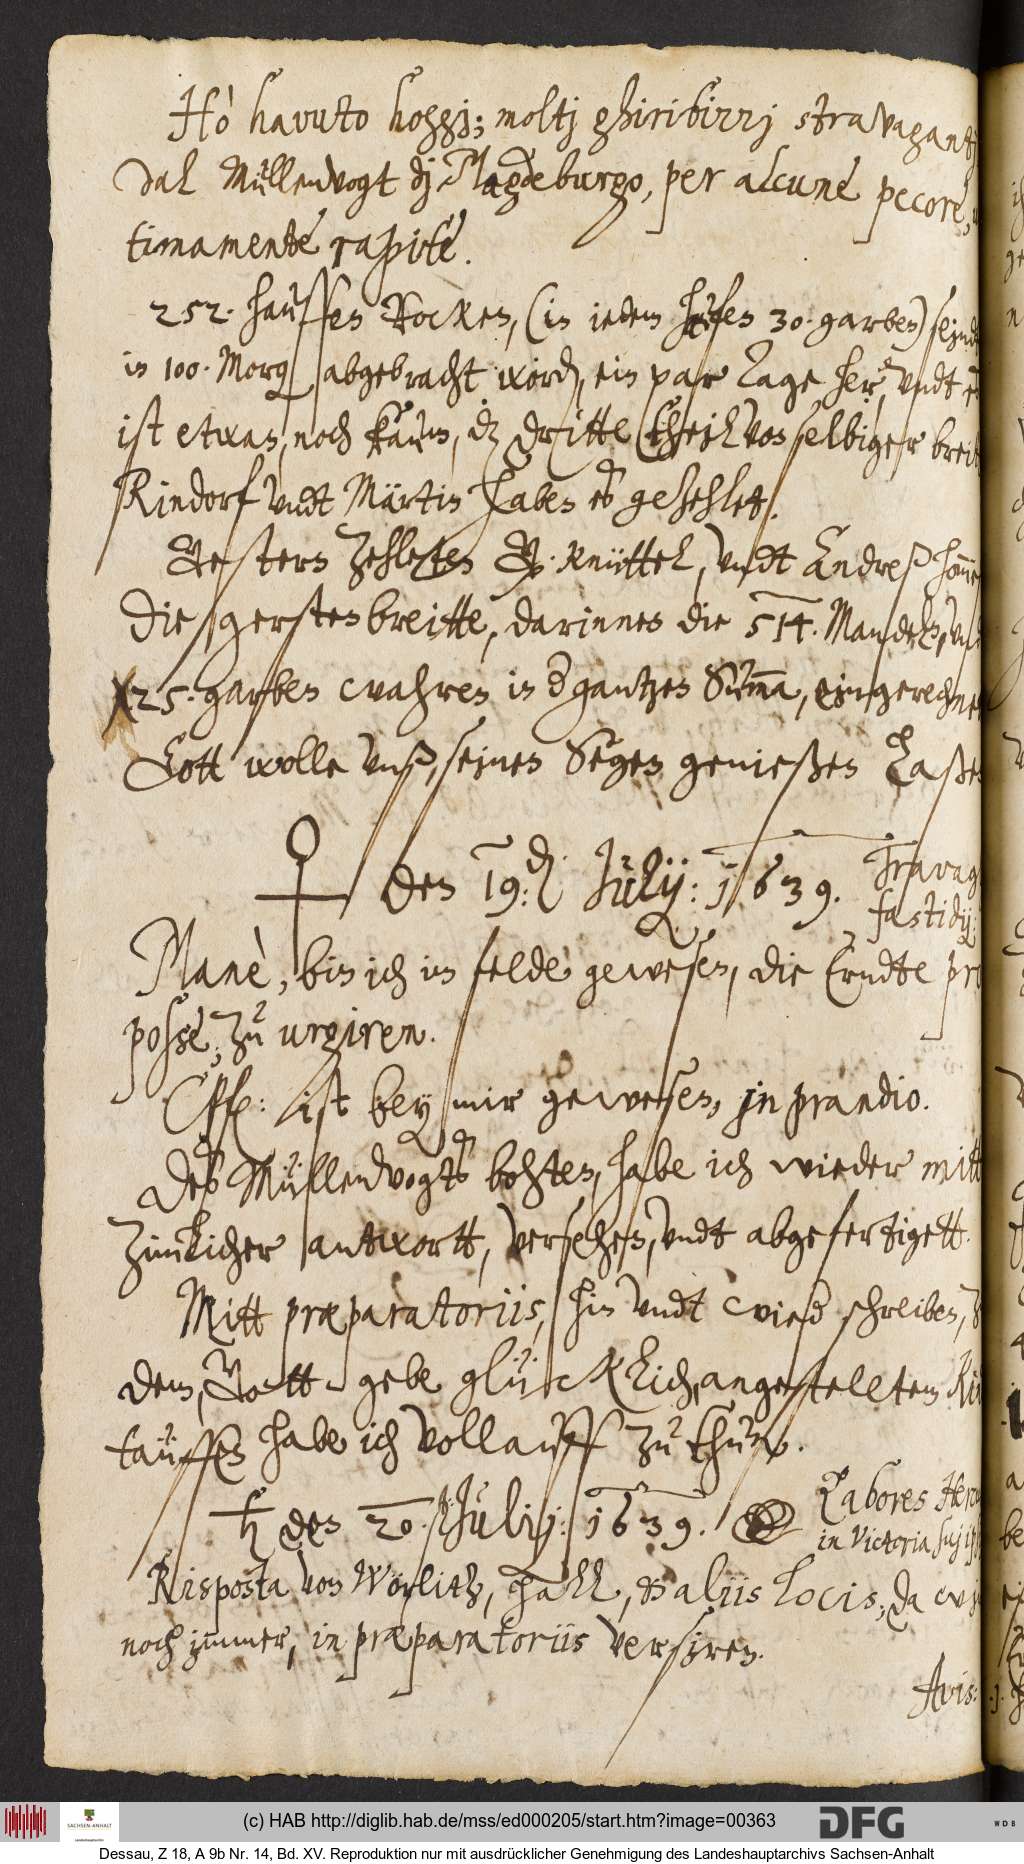 Hò havuto hoggj; moltj ghiribizzj stravagantj
dal Müllenvogt dj Magdeburgo, per alcune pecore,
timamente rapite.
252. hauffen Rocken, (in iedem hauffen 30. garben) seindt
in 100. Morg abgebracht word, ein par Tage her, undt
ist etwan, noch kaum, dz dritte theil von selbiger breit
Rindorf undt Märtin haben es gezehlet.
Gestern zehleten G. Knüttel, undt Andreß
die gerstenbreitte, darinnen die 514. Mandeln,
25. garben wahren in d gantzen Summa, eingerechnet
Gott wolle unß, seinen Segen genießen Laßen
♀ den 19.d July: 1639. Travag
fastidij:
Manè, bin ich im felde gewesen, die Erndte pro
posse, zu urgiren.
ist bey mir gewesen, in prandio.
Des Müllenvogts bohten, habe ich wieder mitt
zimlicher antwortt, versehen, undt abgefertigett.
Mitt præparatoriis, hin undt wied schreiben,
dem, Gott gebe glücklich, angestelltem
tauffen habe ich vollauff zu thun.
♄ den 20. Julij: 1639. Labores
in Victoria
Risposta von Wörlitz, Hall, & aliis locis, da
noch immer, in præparatoriis versiren.
Avis:
(c) HAB http://diglib.hab.de/mss/ed000205/start.htm?image=00363
SACHSEN-ANHALT
DFG
Dessau, Z 18, A 9b Nr. 14, Bd. XV. Reproduktion nur mit ausdrücklicher Genehmigung des Landeshauptarchivs Sachsen-Anhalt